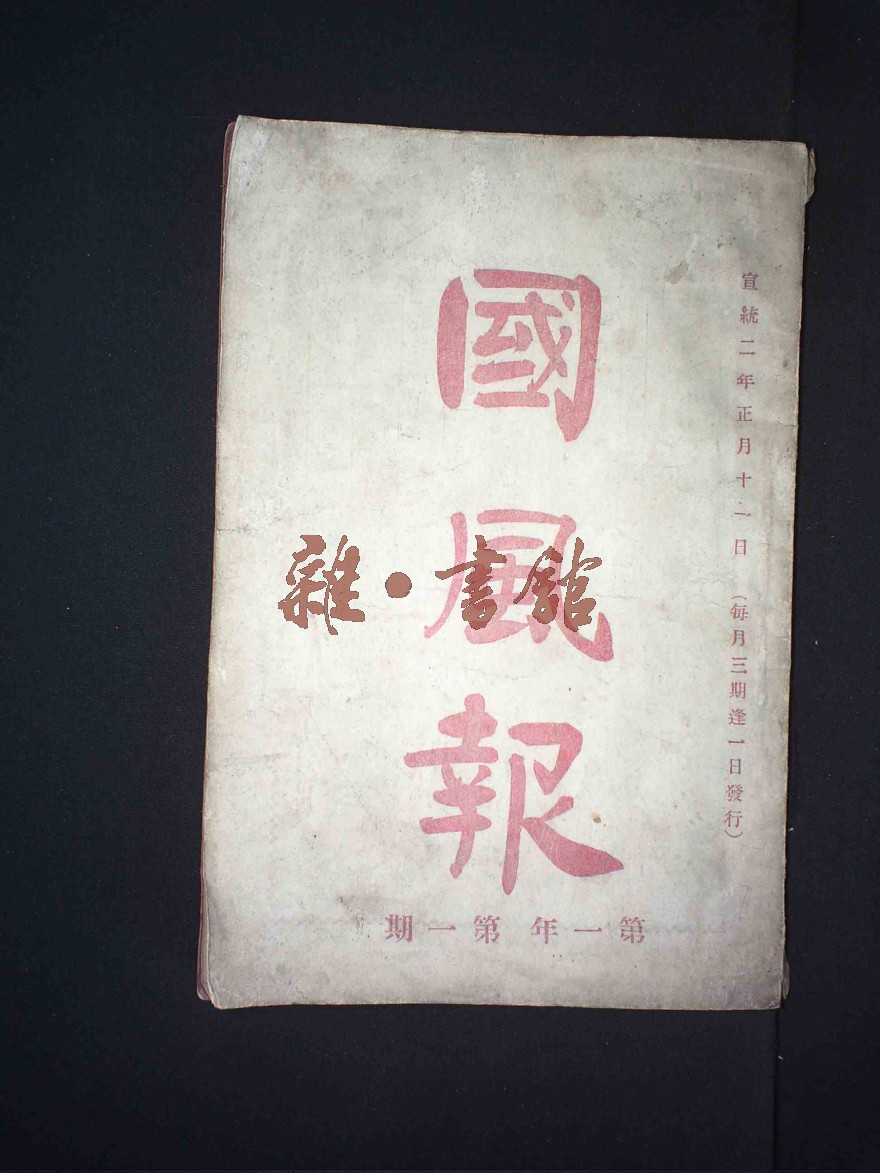 宣統二年正月十一日（每月三期逢一日發行）
國風報
第一年第一期
雜·書館